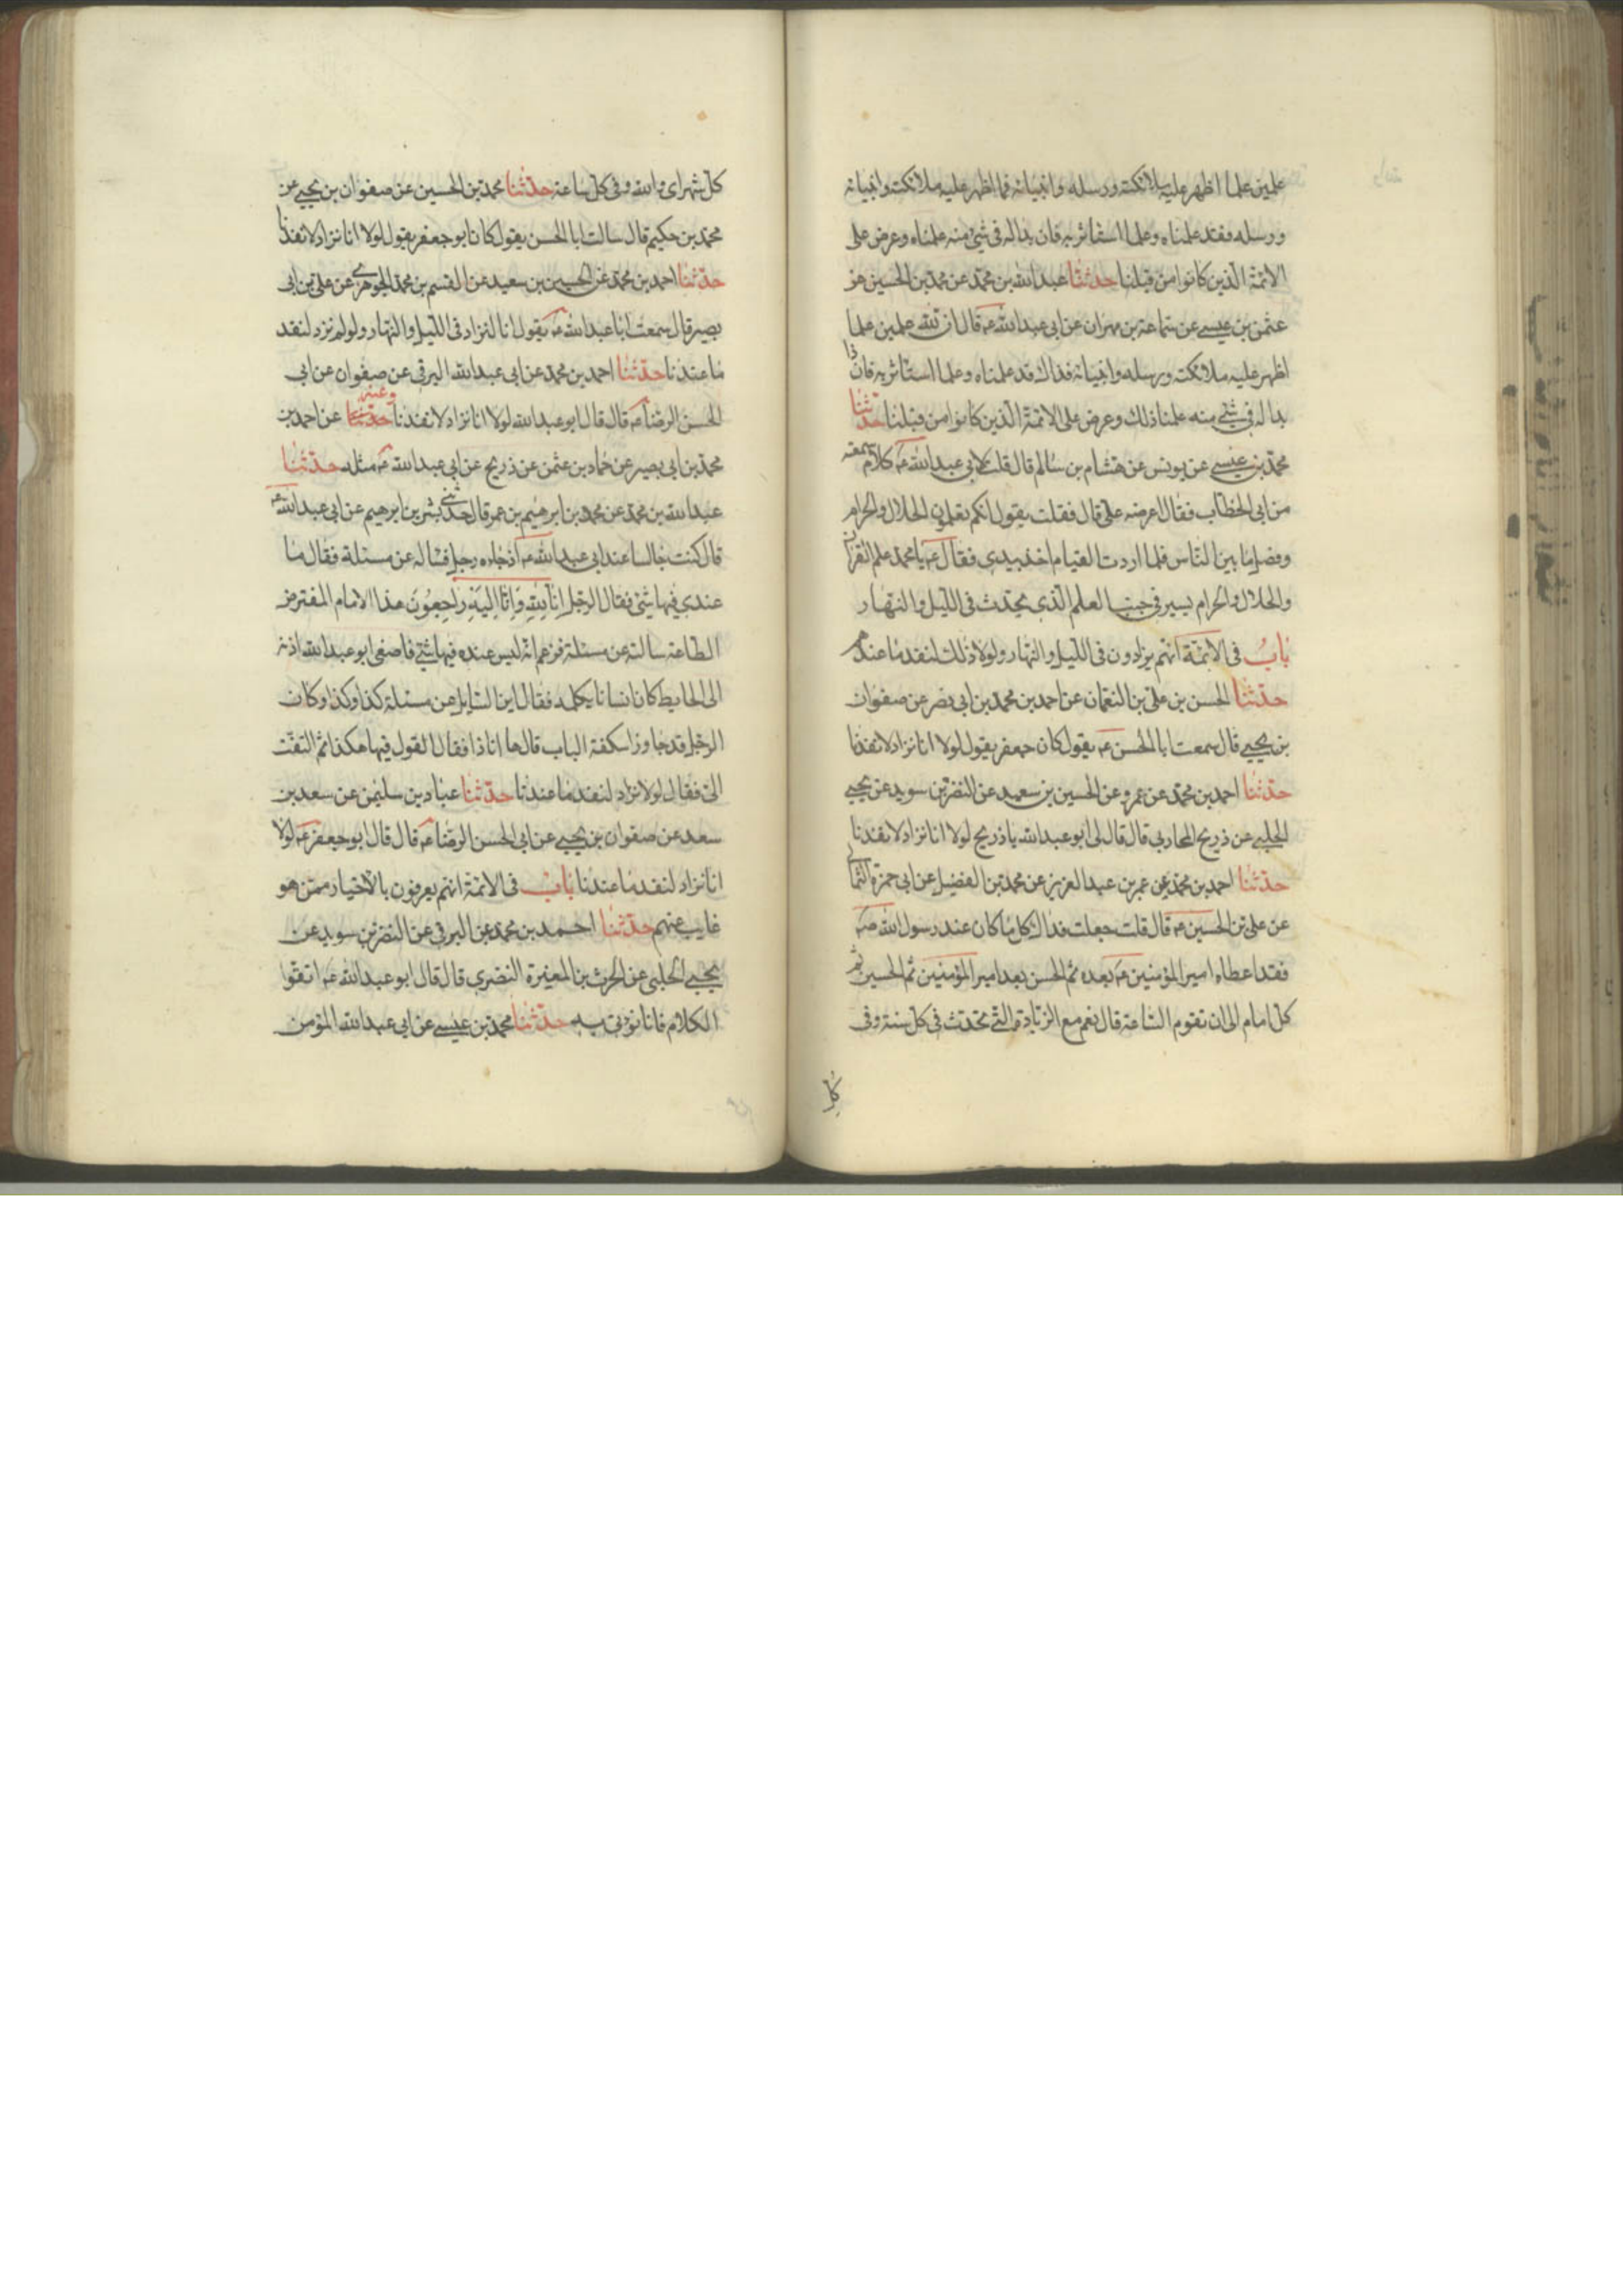 علمين علما اظهر عليه ملائكته ورسله وانبيائه فما اظهر عليه ملائكته وانبيائه
ورسله فقد علمناه وعلما استاثر به فان بدا له فى شئ منه علمناه وعرض على
الائمة الذين كانوا من قبلنا حدثنا عبد الله بن محمد عن محمد بن الحسين عن
عثمن بن عيسى عن سماعة بن مهران عن ابى عبد الله عه قال ان لله علمين علما
اظهر عليه ملائكته ورسله وانبيائه فذاك قد علمناه وعلما استاثر به فاذا
بدا له فى شئ منه علمنا ذلك وعرض على الائمة الذين كانوا من قبلنا حدثنا
محمد بن عيسى عن يونس عن هشام بن سالم قال قلت لابى عبد الله عه كلام سمعته
من ابى الخطاب فقال اعرضه على قال فقلت يقول انكم تعلمون الحلال والحرام
وفصل ما بين الناس فلما اردت القيام اخذ بيدى فقال عه يا محمد علم القران
والحلال والحرام يسير فى جنب العلم الذى يحدث فى الليل والنهار
باب فى الائمة انهم يزادون فى الليل والنهار ولولا ذلك لنفد ما عندهم
حدثنا الحسن بن على بن النعمان عن احمد بن محمد بن ابى نصر عن صفوان
بن يحيى قال سمعت ابا الحسن عه يقول كان جعفر يقول لولا انا نزاد لانفدنا
حدثنا احمد بن محمد عن عمرو عن الحسين بن سعيد عن النضر بن سويد عن يحيى
الحلبى عن ذريح المحاربى قال قال لى ابو عبد الله يا ذريح لولا انا نزاد لانفدنا
حدثنا احمد بن محمد عن عمر بن عبد العزيز عن محمد بن الفضيل عن ابى حمزة الثمالى
عن على بن الحسين عه قال قلت جعلت فداك كل ما كان عند رسول الله صه
فقد اعطاه امير المؤمنين عه بعده ثم الحسن بعد امير المؤمنين ثم الحسين ثم
كل امام الى ان تقوم الساعة قال نعم مع الزيادة التى تحدث فى كل سنة وفى
كل
كل شهر اى والله وفى كل ساعة حدثنا محمد بن الحسين عن صفوان بن يحيى عن
محمد بن حكيم قال سالت ابا الحسن يقول كان ابو جعفر يقول لولا انا نزاد لانفدنا
حدثنا احمد بن محمد عن الحسين بن سعيد عن القسم بن محمد الجوهرى عن على بن ابى
بصير قال سمعت ابا عبد الله عه يقول انا لنزاد فى الليل والنهار ولو لم نزد لنفد
ما عندنا حدثنا احمد بن محمد عن ابى عبد الله البرقى عن صفوان عن ابى
الحسن الرضا عه قال قال ابو عبد الله لولا انا نزاد لانفدنا حدثنا وعنه عن احمد بن
محمد بن ابى بصير عن حماد بن عثمن عن ذريح عن ابى عبد الله عه مثله حدثنا
عبد الله بن محمد عن محمد بن ابرهيم بن عمر قال حدثنى بشر بن ابرهيم عن ابى عبد الله عه
قال كنت جالسا عند ابى عبد الله عه اذ جاءه رجل فساله عن مسئلة فقال ما
عندى فيها شئ فقال الرجل انا لله وانا اليه راجعون هذا الامام المفترض
الطاعة سالته عن مسئلة فزعم انه ليس عنده فيها شئ فاصغى ابو عبد الله اذنه
الى الحايط كان انسانا يكلمه فقال اين السايل عن مسئلة كذا وكذا وكان
الرجل قد جاوز اسكفة الباب قال ها انا ذا فقال القول فيها هكذا ثم التفت
الى فقال لولا نزاد لنفد ما عندنا حدثنا عباد بن سليمن عن سعد بن
سعد عن صفوان بن يحيى عن ابى الحسن الرضا عه قال قال ابو جعفر عه لولا
انا نزاد لنفد ما عندنا باب فى الائمة انهم يعرفون بالاختيار ممن هو
غايب عنهم حدثنا احمد بن محمد عن البرقى عن النضر بن سويد عن
يحيى الحلبى عن الحرث بن المغيرة النضرى قال قال ابو عبد الله عه اتقوا
الكلام فانا نؤتى به حدثنا محمد بن عيسى عن ابى عبد الله المؤمن